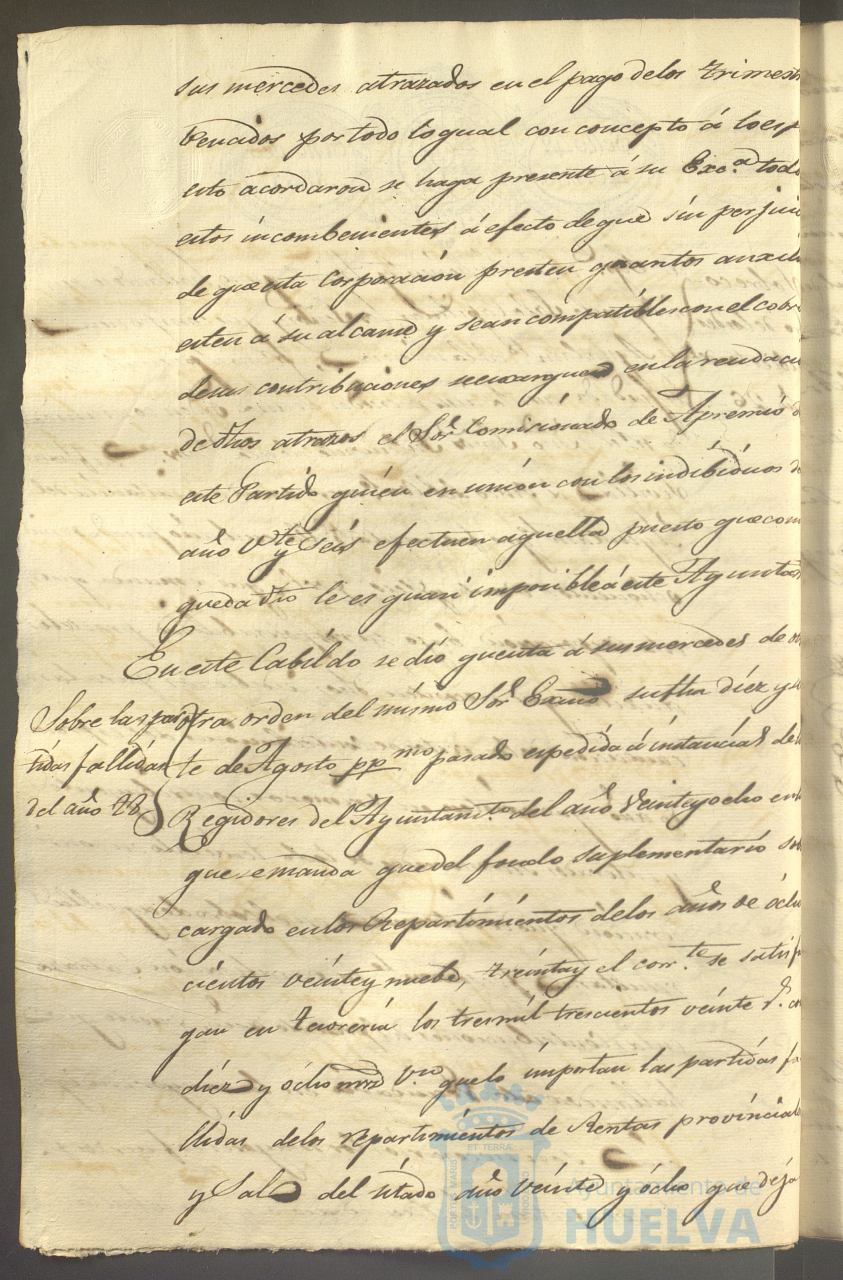 sus mercedes atrazados en el pago delos trimest
bencidos por todo loqual con concepto á lo esp
esto acordaron se haga presente á su Exc.ª todo
estos incombenientes á efecto de que sin perjuici
de que esta Corporacion presten quantos auxili
esten á su alcance y sean compatibles con el cobr
desus contribuciones se encarguen en la recaudaci
de dhos atrazos el Sor. Comicionado de Apremio d
este Partido quien en union con los indibiduos d
año Vte y Seis efectuen aquella puesto que com
queda dho le es quasi imposible á este Ayuntam
En este Cabildo se dio quenta á sus mercedes de
Sobre las par
tidas fallidas
del año 28
otra orden del mismo Sor. Exmo su fha diez y si
te de Agosto pp.mo pasado espedida á instancias de l
Regidores del Ayuntam.to del año Veintiyocho en la
que se manda que del fondo suplementario so
cargado en los Repartimientos de los años de ócho
cientos Veinte y nuebe, treinta y el corr.te se satisf
gan en Tesorería los tres mil trescientos veinte r.s co
diez y ócho mrs. V.on que lo importan las partidas fa
llidas delos repartimientos de Rentas provincial
y Sal del citado año Veinte y ócho que deja
PORTUS MARIS
ET TERRÆ
CUSTODIA
Ayuntamiento de
HUELVA